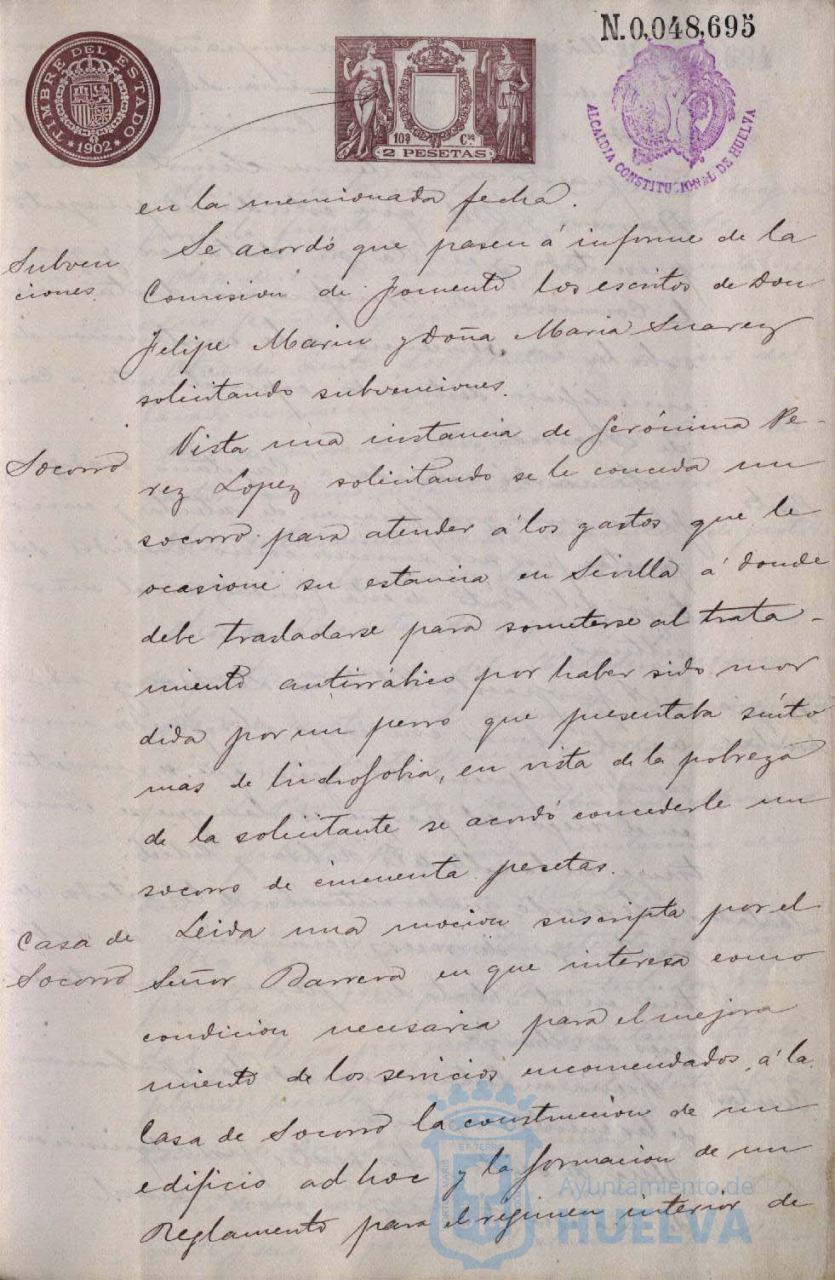 N.0,048,695
TIMBRE DEL ESTADO
*1902*
AÑO 1902
10ª Cse
2 PESETAS
ALCALDIA CONSTITUCIONAL DE HUELVA
en la mencionada fecha.
Subven
ciones
Se acordó que pasen á informe de la
Comision de Fomento los escritos de Don
Felipe Marin y Doña Maria Suarez
solicitando subvenciones.
Socorro
Vista una instancia de Gerónima Pe-
rez Lopez solicitando se le conceda un
socorro para atender á los gastos que le
ocasione su estancia en Sevilla á donde
debe trasladarse para someterse al trata-
miento antirrábico por haber sido mor
dida por un perro que presentaba sínto
mas de hidrofobia, en vista de la pobreza
de la solicitante se acordó concederle un
socorro de cincuenta pesetas.
Casa de
Socorro
Leida una mocion suscripta por el
Señor Barrera en que interesa como
condicion necesaria para el mejora
miento de los servicios encomendados á la
Casa de Socorro la construccion de un
edificio ad hoc y la formacion de un
Reglamento para el régimen interior de
Ayuntamiento de
HUELVA